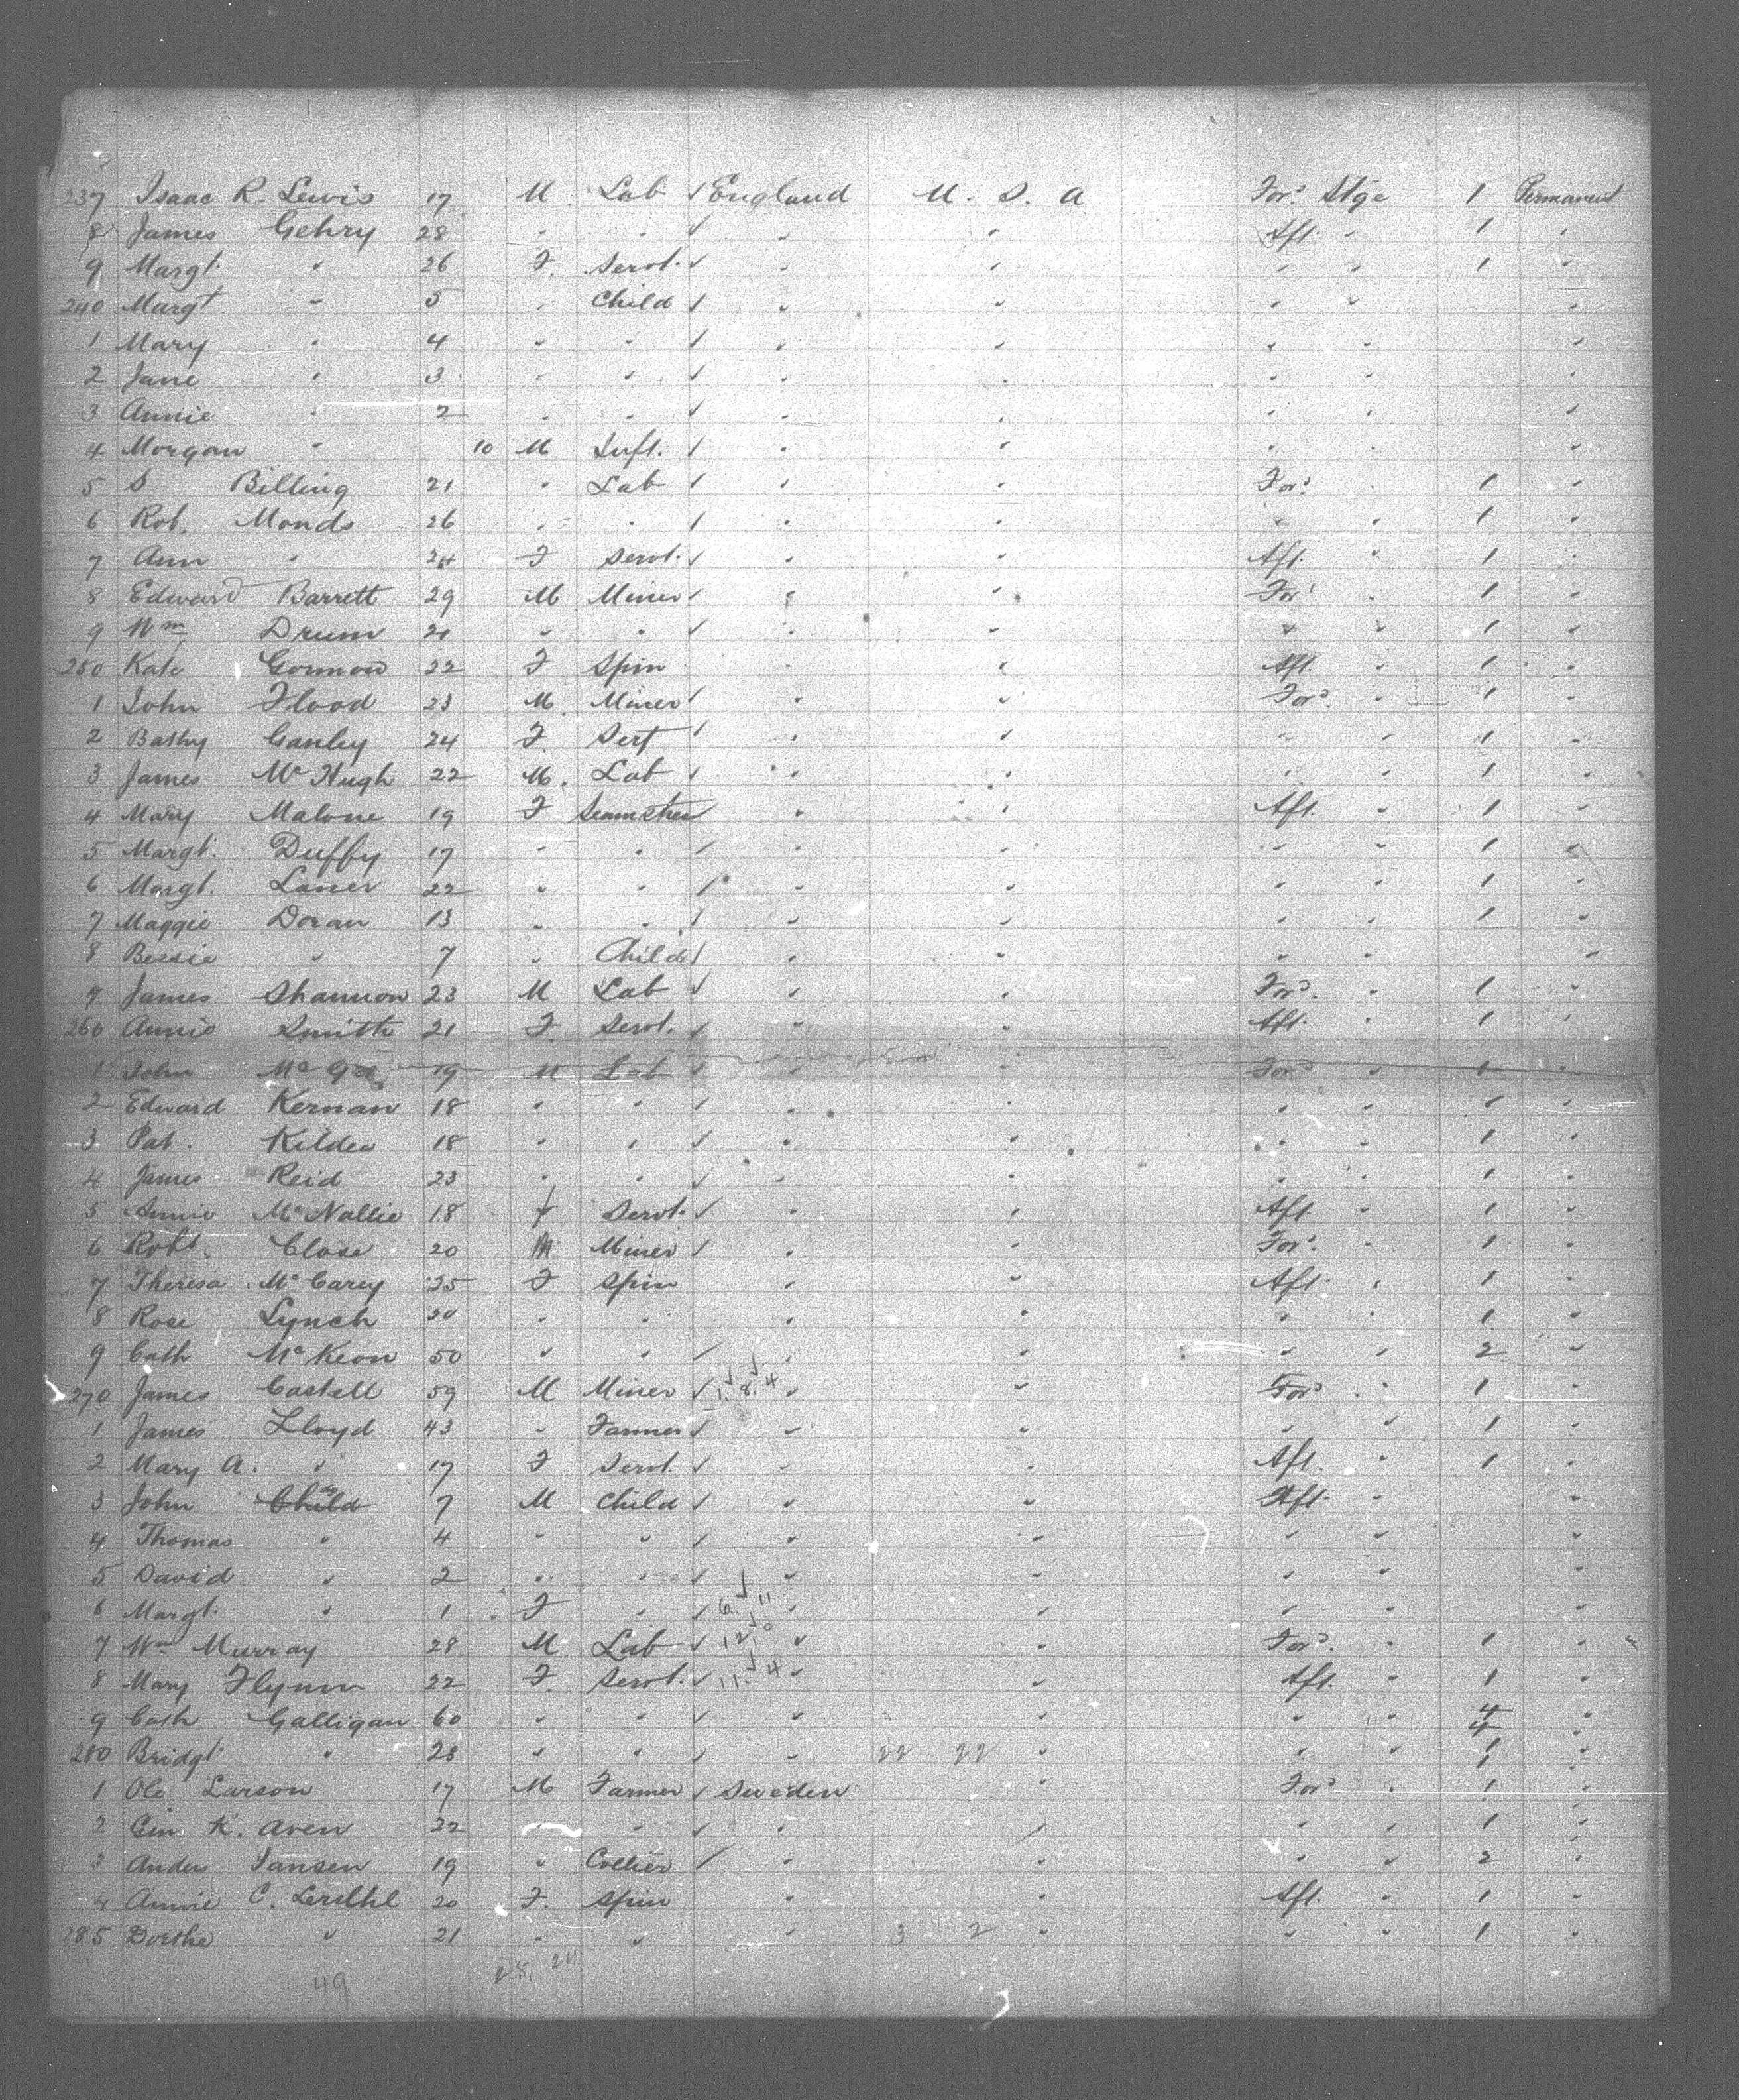 237 Isaac R. Lewis 17 M. Lab ✓ England U. S. A For^d Stge 1 Permanent
8 James Gehry 28 " " ✓ " " Aft. " 1 "
9 Margt. " 26 F. Servt. ✓ " " " " 1 "
240 Margt. " 5 " Child ✓ " " " " "
1 Mary " 4 " " ✓ " " " " "
2 Jane " 3 " " ✓ " " " " "
3 Annie " 2 " " ✓ " " " " "
4 Morgan " 10 M Inft. ✓ " " " " "
5 S Billing 21 " Lab ✓ " " For^d " 1 "
6 Rob. Monds 26 " " ✓ " " " " 1 "
7 Ann " 24 F Servt. ✓ " " Aft. " 1 "
8 Edward Barrett 29 M Miner ✓ " " For^d " 1 "
9 Wm Drum 21 " " ✓ " " " " 1 "
250 Kate Gormon 22 F Spin " " Aft. " 1 "
1 John Flood 23 M. Miner ✓ " " For^d " 1 "
2 Bathy Ganley 24 F. Sert ✓ " " " " 1 "
3 James McHugh 22 M. Lab ✓ " " " " 1 "
4 Mary Malone 19 F Seamstress ✓ " " Aft. " 1 "
5 Margt. Duffy 17 " " ✓ " " " " 1 "
6 Margt. 22 " " ✓ " " " " 1 "
7 Maggie Doran 13 " " ✓ " " " " 1 "
8 Bessie " 7 " Child ✓ " " " " "
9 James Shannon 23 M Lab ✓ " " For^d " 1 "
260 Annie Smith 21 F. Servt. ✓ " " Aft. " 1 "
1 John 19 M Lab ✓ " " For^d " 1 "
2 Edward Kernan 18 " " ✓ " " " " 1 "
3 Pat. Kildea 18 " " ✓ " " " " 1 "
4 James Reid 23 " " ✓ " " " " 1 "
5 Annie McNallie 18 f Servt. ✓ " " Aft. " 1 "
6 Robt. Close 20 M Miner ✓ " " For^d " 1 "
7 Theresa McCarey 25 F Spin " " Aft. " 1 "
8 Rose Lynch 20 " " " " " " 1 "
9 Cath McKeon 50 " " ✓ " " " " 2 "
270 James Castell 59 M Miner ✓ 1. 8. 4 " " For^d " 1 "
1 James Lloyd 43 " Farmer ✓ " " " " 1 "
2 Mary A. " 17 F Servt. ✓ " " Aft. " 1 "
3 John Child 7 M Child ✓ " " Aft. " "
4 Thomas " 4 " " ✓ " " " " "
5 David " 2 " " ✓ " " " " "
6 Margt. " 1 F " ✓ 6. 11 " " " " "
7 Wm Murray 28 M Lab ✓ 12. 0 " " For^d " 1 "
8 Mary Flynn 22 F. Servt. ✓ 11. 4 " " Aft. " 1 "
9 Cath Galligan 60 " " ✓ " " " " 4 "
4
280 Bridgt " 28 " " ✓ " 22 22 " " " 1 "
1 Ole Larson 17 M Farmer ✓ Sweden " For^d " 1 "
2 K. Aven 22 " ✓ " " " " 1 "
3 Anders Jansen 19 " Collier ✓ " " " " 2 "
4 Annie C. 20 F. Spin " " Aft. " 1 "
285 Dorthe " 21 " " " 3 2 " " " 1 "
49 28. 24